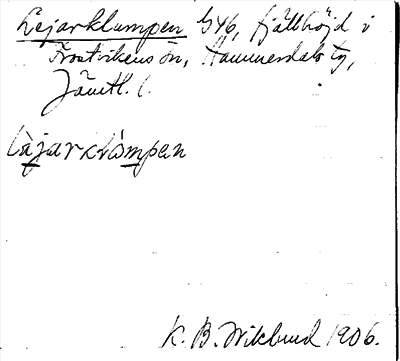 Lejarklumpen G46, fjällhöjd i
Frostvikens sn, Hammerdals tg,
Jämtl. l.
làjarklòmpen
K. B. Wiklund 1906.